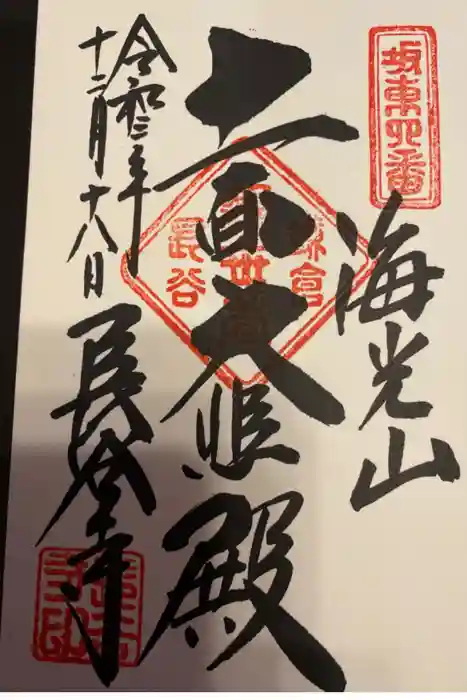 坂東四番
海光山
十一面大悲殿
鎌倉
観世音
長谷
令和三年
十二月十八日
長谷寺